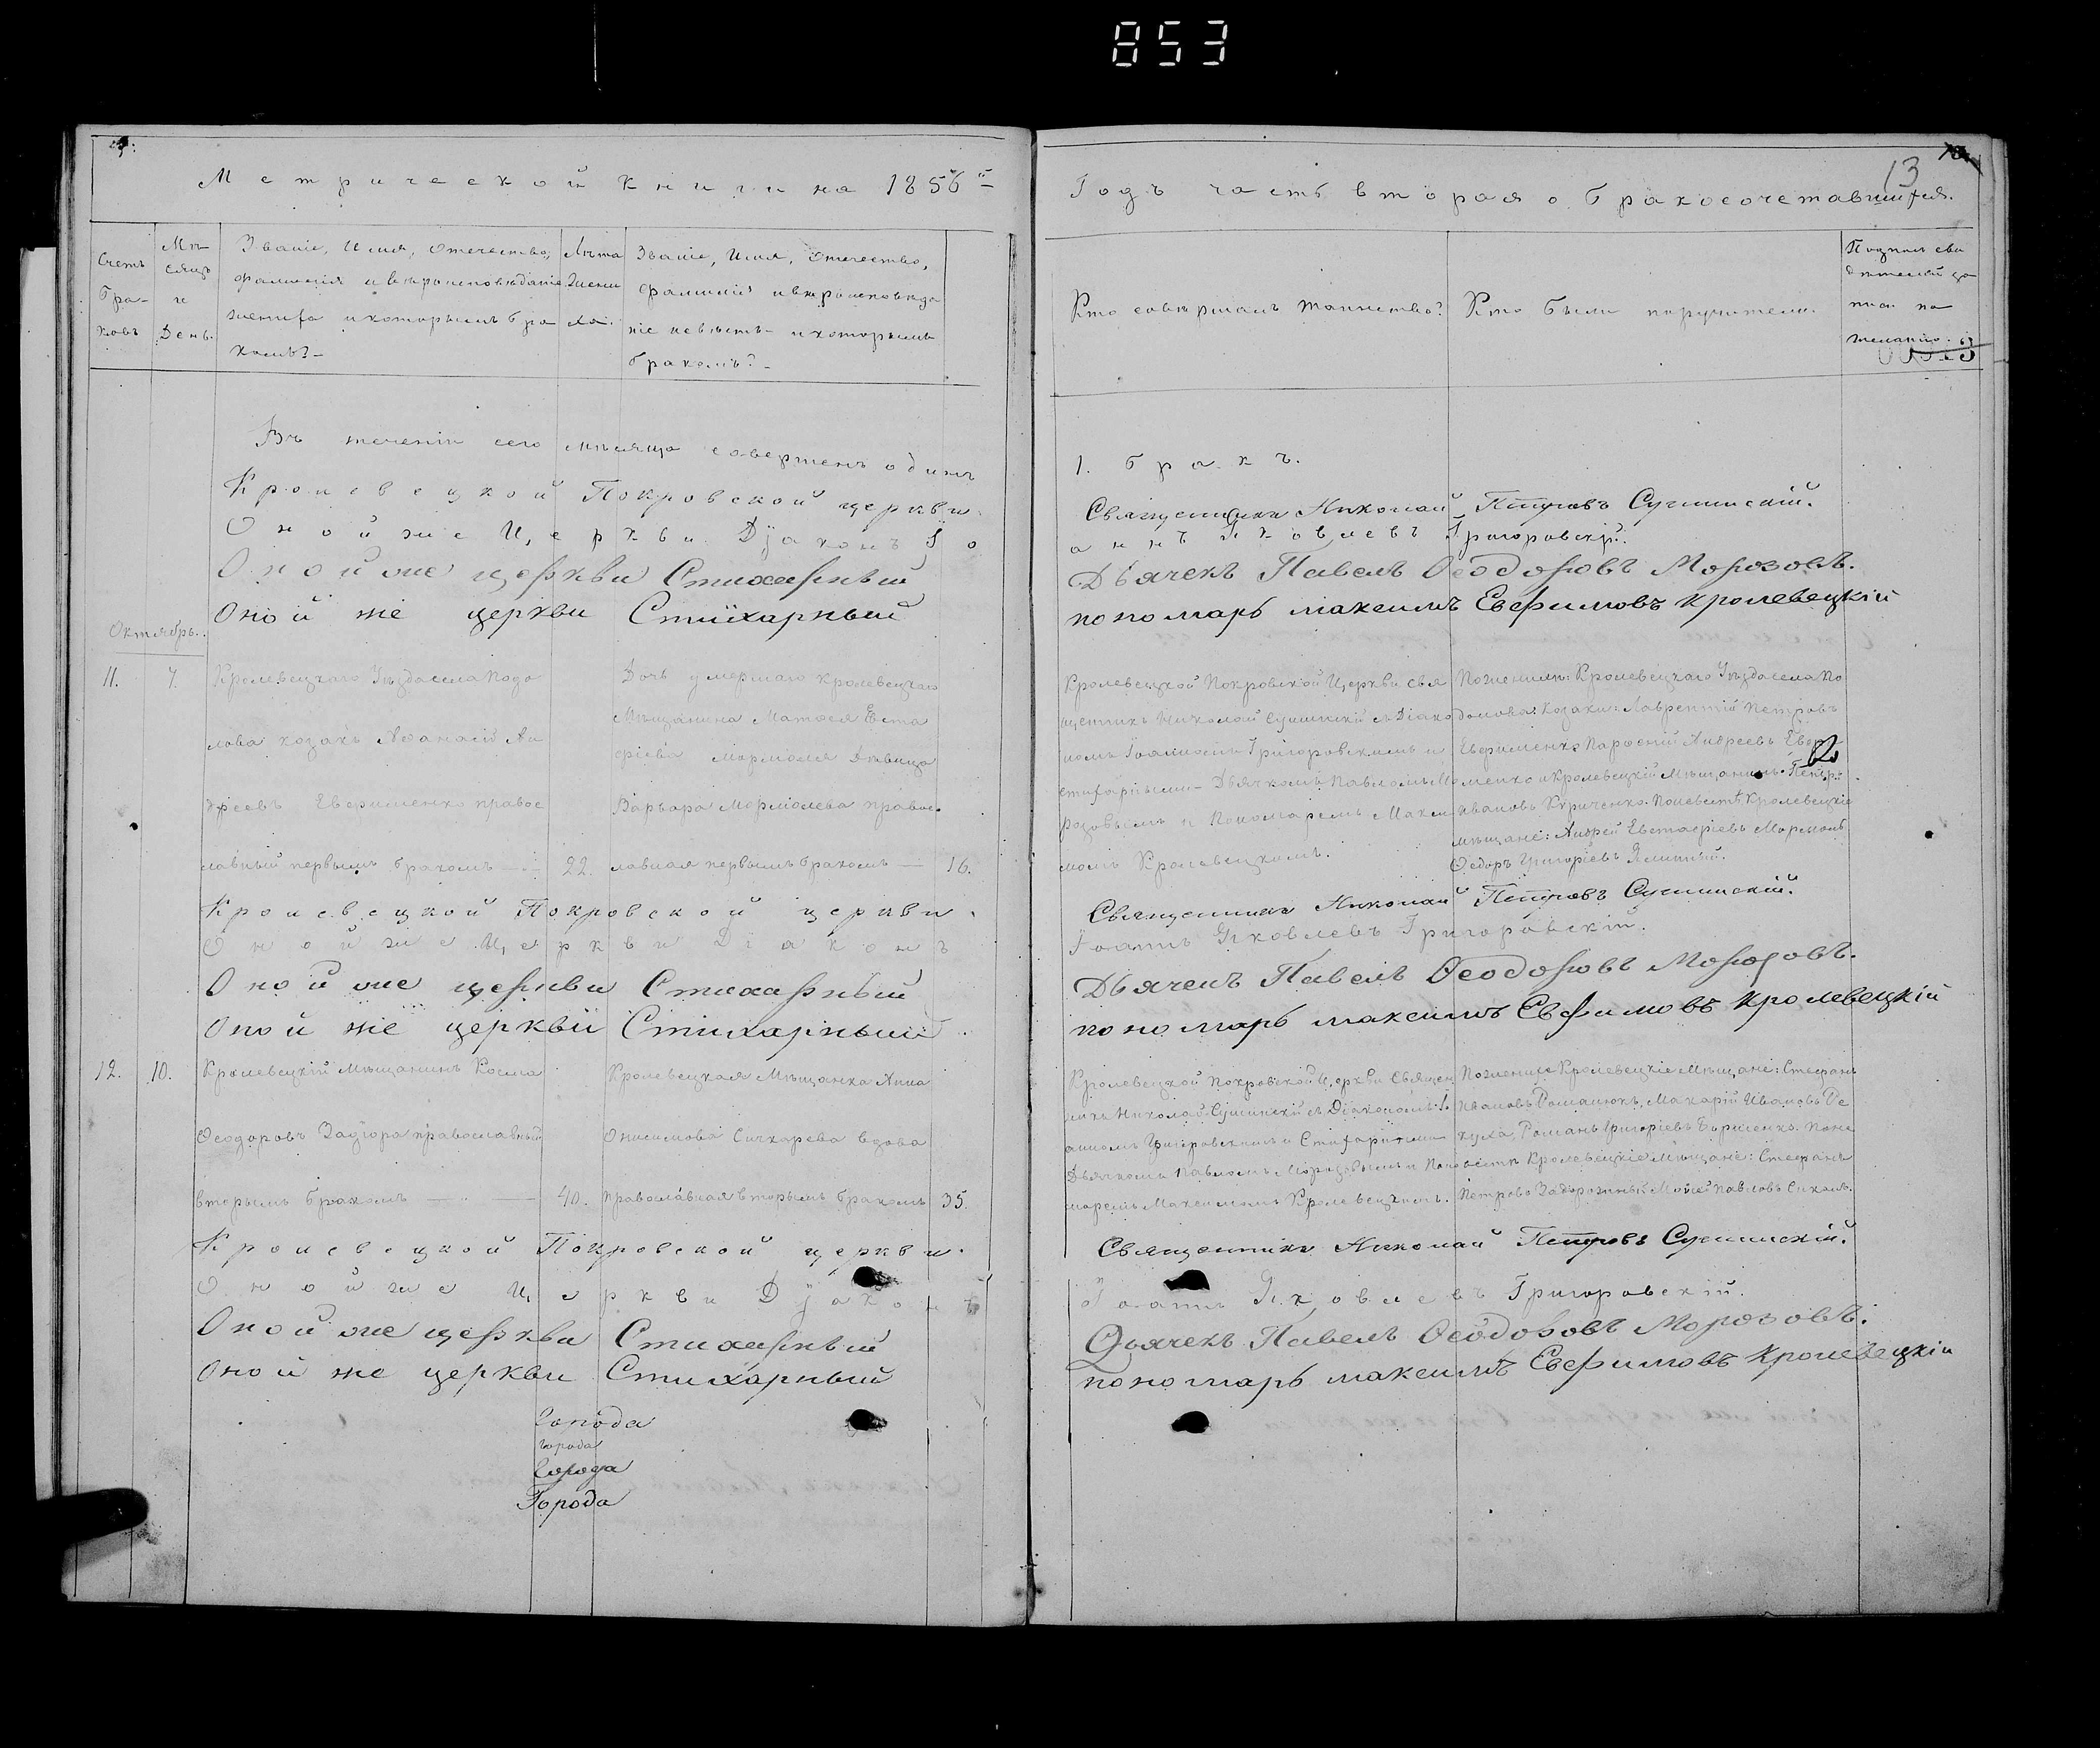 853
Метрической книги на 1856й
Годъ часть вторая о бракосочетавшихся.
13
Счетъ бра-ковъ
Мѣ-сяцъ и День.
Званіе, Имя, Отечество,
фамилія и вѣроисповѣданіе
жениха и которымъ бра
комъ?-
Лѣта
Жени
ха.
Званіе, Имя, Отечество,
фамилія и вѣроисповѣда
ніе невѣсты и которымъ
бракомъ?-
Кто совершалъ таинство?
Кто были поручители.
Подпись сви
дѣтелей за
писи по
желанію.
Въ теченіи сего мѣсяца совершенъ одинъ
1. бракъ.
Кролевецкой Покровской церкви
Священникъ Николай Петровъ Сушинскій.
Оной же Церкви Діяконъ Іо
аннъ Яковлевъ Григоровскій.
Оной же церкви Стихарный
Дьячекъ Павелъ Ѳеодоровъ Морозовъ.
Оной же церкви Стихарный
пономарь максимъ Евфимовъ кролевецкій
Октябрь.
11.
7.
Кролевецкаго Уѣзда села Подо
лова козакъ Аѳанасій Ан
дреевъ Евфименко правос
лавный первымъ бракомъ
22.
Дочь умершаго кролевецкаго
Мѣщанина Матѳея Евста
фіева Мормоля Дѣвица
Варвара Мормолева правос
лавная первымъ бракомъ
16.
Кролевецкой Покровской Церкви свя
щенникъ Николай Сушинскій съ Діако
номъ Іоанномъ Григоровскимъ и
стихарными Дьячкомъ Павломъ Мо
розовымъ и Пономаремъ Макси
момъ Кролевецкимъ.
По женихѣ: Кролевецкаго Уѣзда села По
долова: Козаки: Лаврентій Петровъ
Евфименко Парѳеній Андреевъ Евфи
менко и Кролевецкій Мѣщанинъ Петръ
Ивановъ Кириченко. По невѣстѣ Кролевецкіе
мѣщане: Андрей Евстафіевъ Мормоль
Ѳедоръ Григоріевъ Ялинный.
Кролевецкой Покровской церкви
Священникъ Николай Петровъ Сушинскій.
Оной же Церкви Діаконъ
Іоаннъ Яковлевъ Григоровскій.
Оной же церкви Стихарный
Дьячекъ Павелъ Ѳеодоровъ Морозовъ.
Оной же церкви Стихарный
пономарь максимъ Евфимовъ кролевецкій
12.
10.
Кролевецкій Мѣщанинъ Косма
Ѳеодоровъ Задгора православный
вторымъ бракомъ
40.
Кролевецкая Мѣщанка Анна
Онисимова Сичкарева вдова
православная вторымъ бракомъ
35.
Кролевецкой Покровской Церкви Священ
никъ Николай Сушинскій съ Діакономъ І.
анномъ Григоровскимъ и Стихарными
Дьячкомъ Павломъ Морозовымъ и Поно
маремъ Максимомъ Кролевецкимъ.
По женихѣ Кролевецкіе Мѣщане: Стефанъ
Ивановъ Романюкъ, Макарій Ивановъ
Романъ Григоріевъ Борисенко. По не
вѣстѣ Кролевецкіе Мѣщане: Стефанъ
Петровъ Задорожный Павловъ
Кролевецкой Покровской церкви
Священникъ Николай Петровъ Сушинскій.
Оной же Церкви Діяконъ
Іоаннъ Яковлевъ Григоровскій.
Оной же церкви Стихарный
Дьячекъ Павелъ Ѳеодоровъ Морозовъ.
Оной же церкви Стихарный
пономарь максимъ Евфимовъ кролевецкій
Города
города
Города
Города